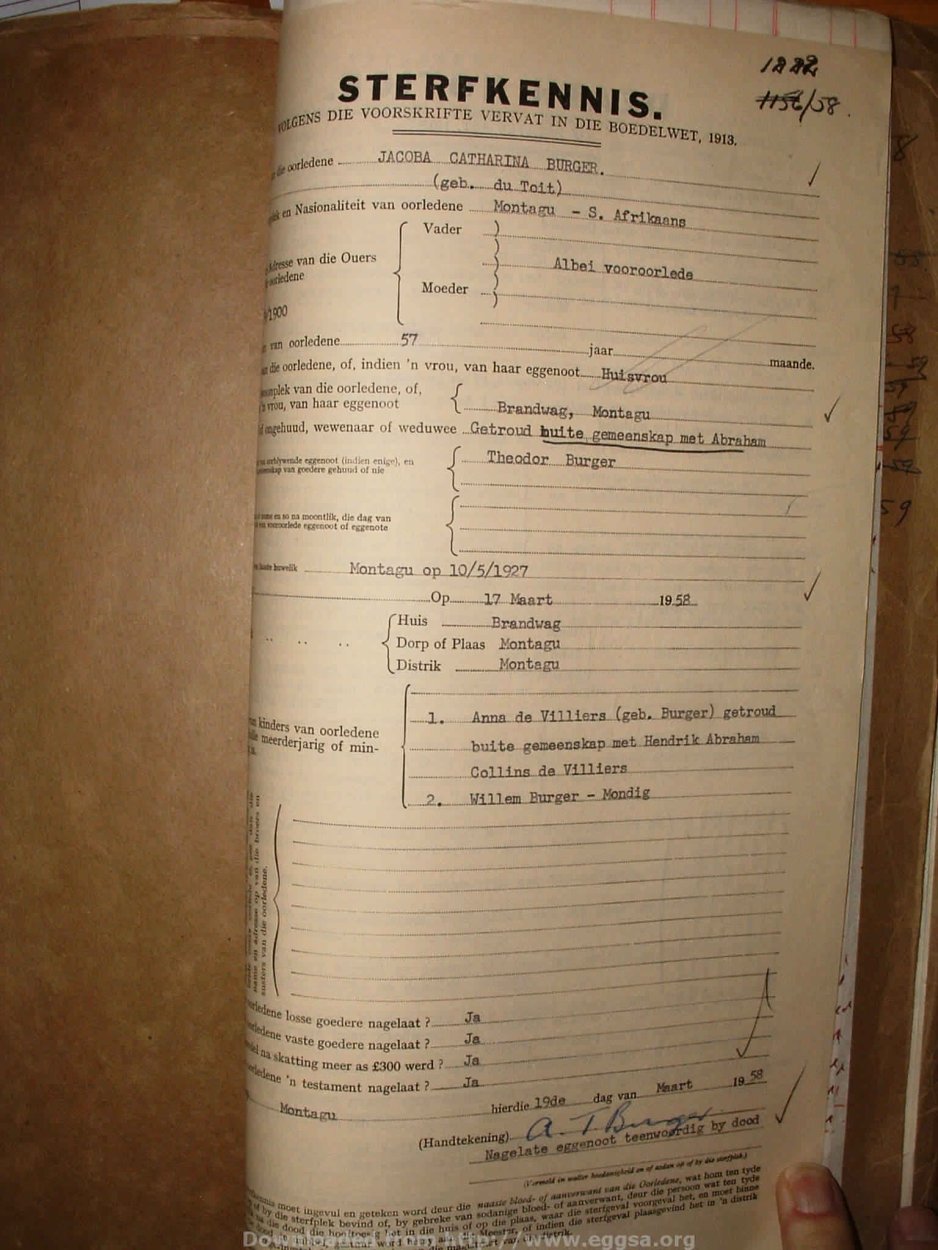 1222
1156/58.
STERFKENNIS.
VOLGENS DIE VOORSKRIFTE VERVAT IN DIE BOEDELWET, 1913.
die oorledene JACOBA CATHARINA BURGER.
(geb. du Toit)
en Nasionaliteit van oorledene Montagu - S. Afrikaans
Vader )
van die Ouers
Albei vooroorlede
Moeder )
/1900
van oorledene 57 jaar maande.
die oorledene, of, indien 'n vrou, van haar eggenoot Huisvrou
van die oorledene, of,
vrou, van haar eggenoot
Brandwag, Montagu
ongehuud, wewenaar of weduwee Getroud buite gemeenskap met Abraham
eggenoot (indien enige), en
van goedere gehuud of nie
Theodor Burger
en so na moontlik, die dag van
vooroorlede eggenoot of eggenote
huwelik Montagu op 10/5/1927
Op 17 Maart 1958
Huis Brandwag
Dorp of Plaas Montagu
Distrik Montagu
kinders van oorledene
meerderjarig of min-
1. Anna de Villiers (geb. Burger) getroud
buite gemeenskap met Hendrik Abraham
Collins de Villiers
2. Willem Burger - Mondig
name en adresse op van die broers en
susters van die oorledene.
losse goedere nagelaat ? Ja
vaste goedere nagelaat ? Ja
na skatting meer as £300 werd ? Ja
'n testament nagelaat ? Ja
Montagu hierdie 19de dag van Maart 1958
(Handtekening) A. T Burger
Nagelate eggenoot teenwoordig by dood
(Vermeld in watter hoedanigheid en of aldan op of by die sterfplek.)
moet ingevul en geteken word deur die naaste bloed- of aanverwant van die Oorledene, wat hom ten tyde
Downloaded from http://www.eggsa.org